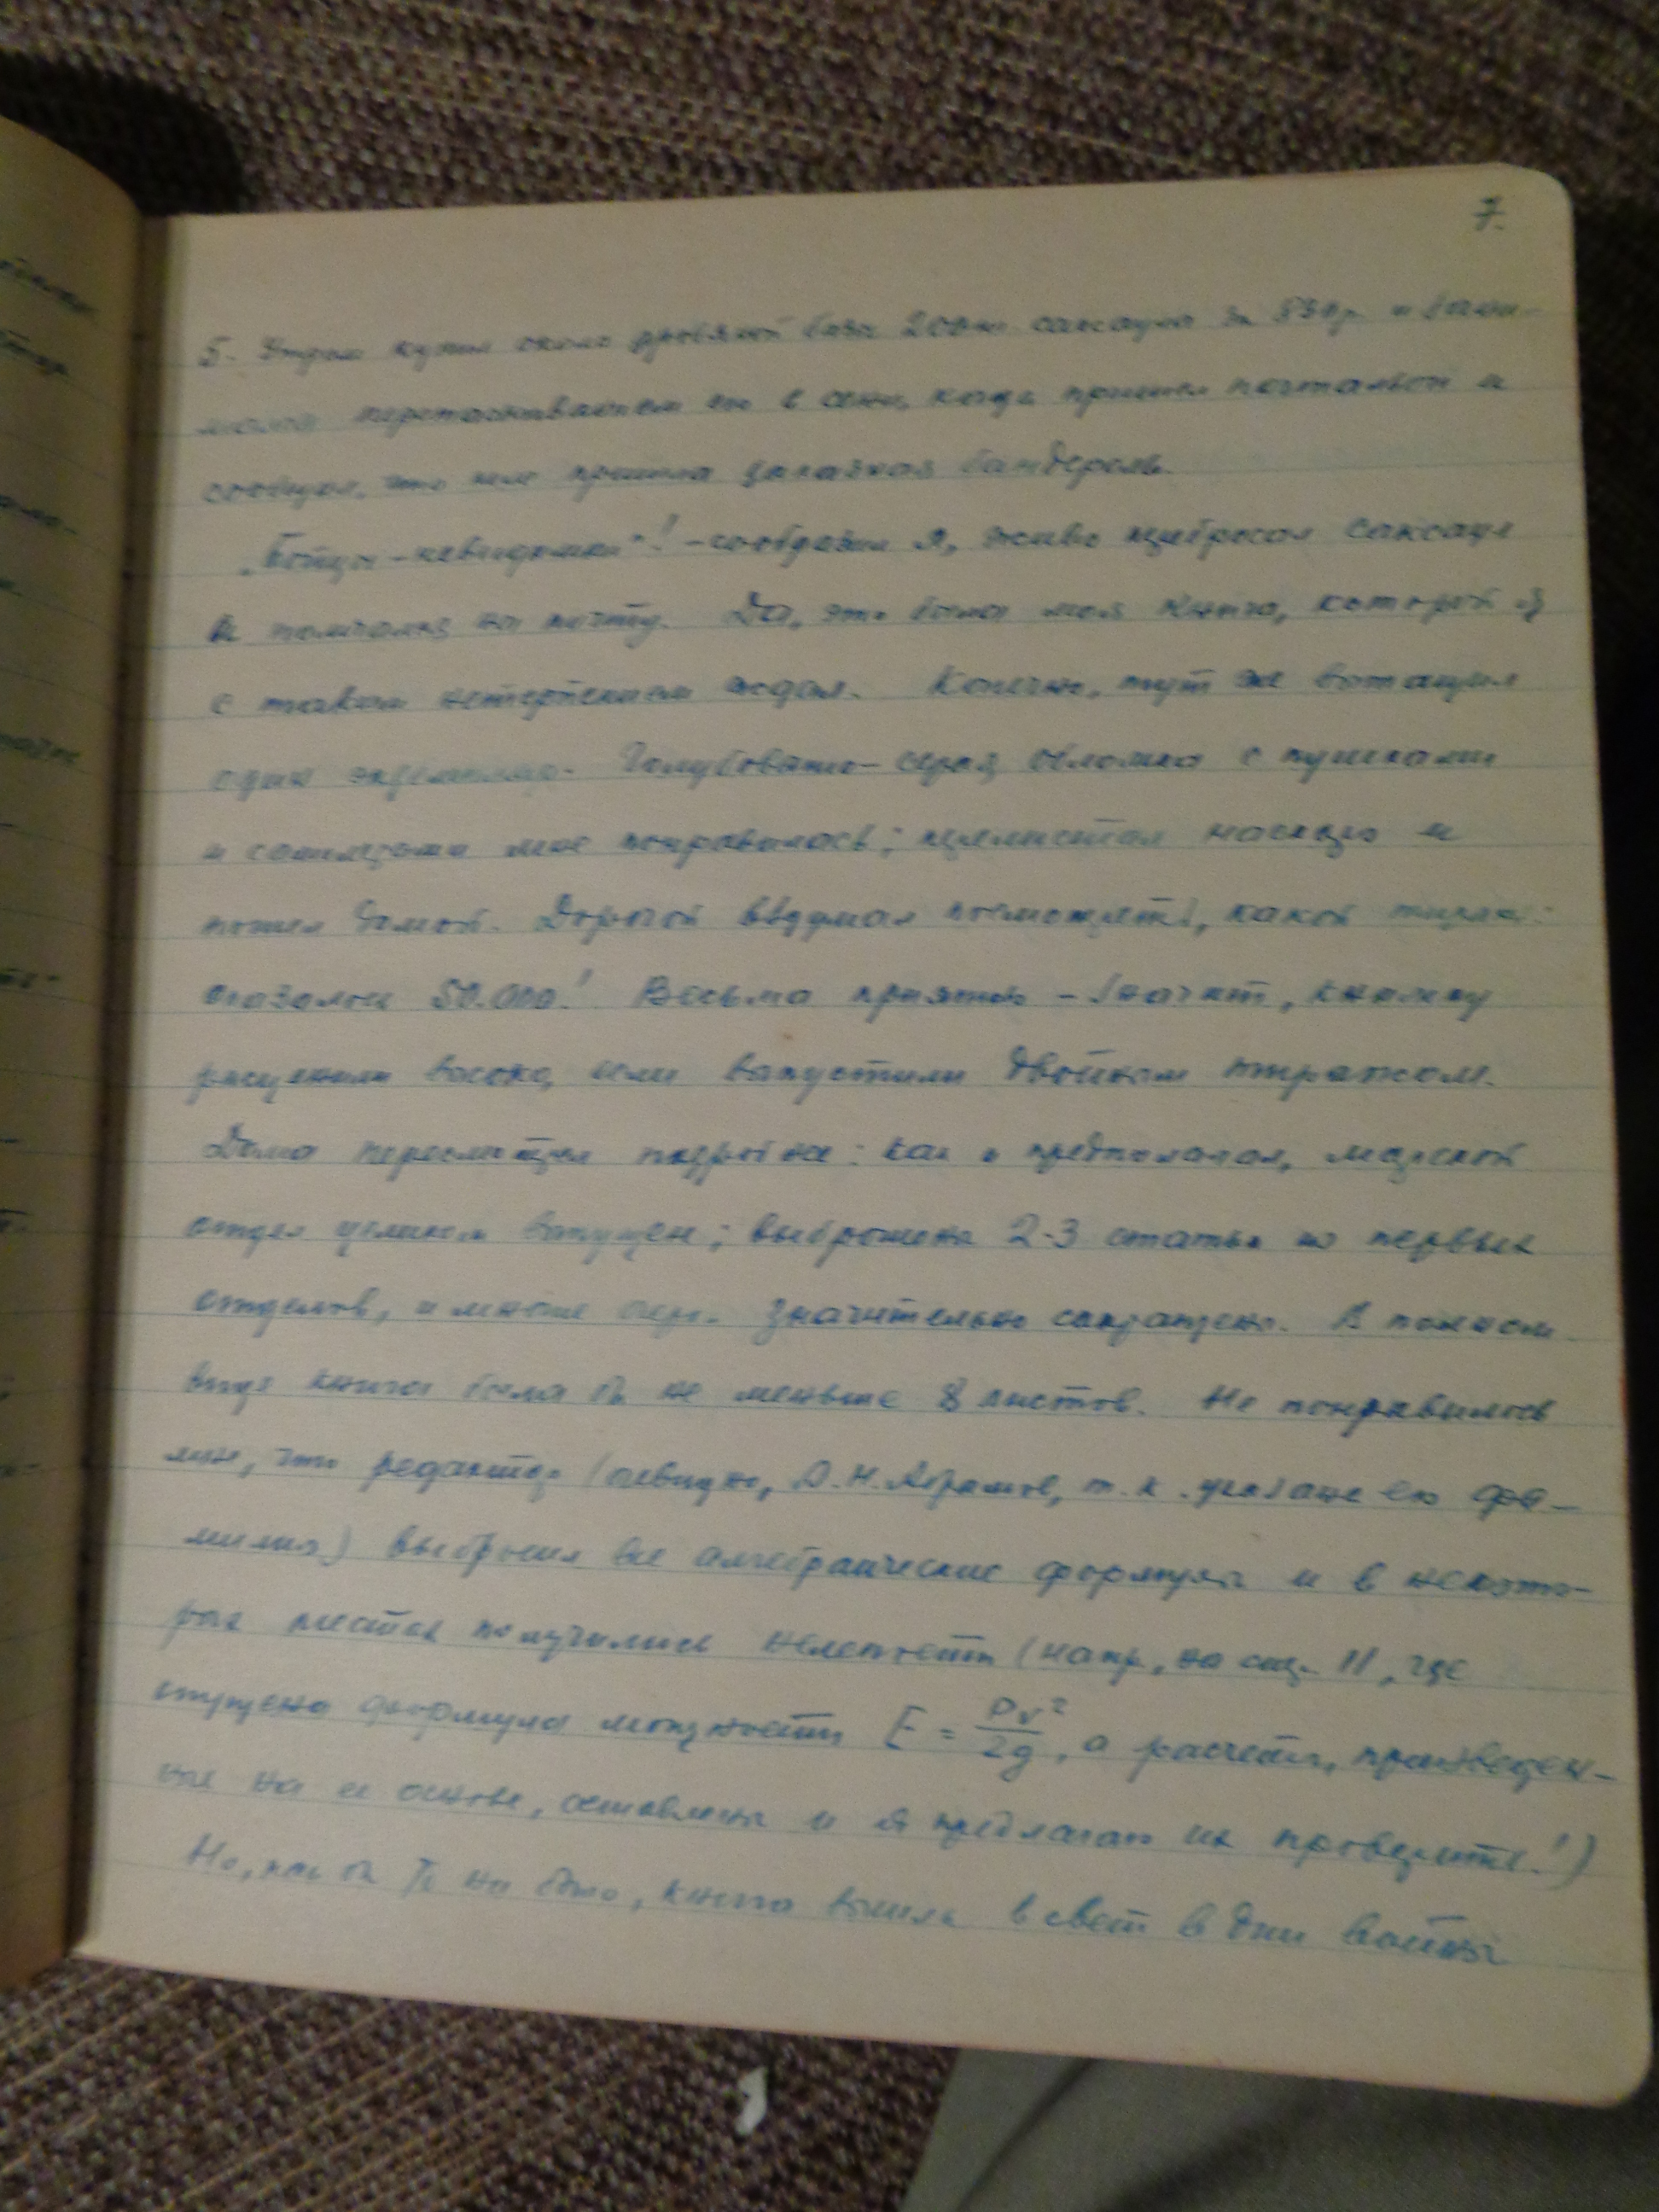 7.
5. Утром купил около дровяной базы 200 кг. саксаула за 830 р. и зани-
мался перетаскиванием его в сени, когда пришел почтальон и
сообщил, что мне пришла заказная бандероль.
„Бойцы-невидимки"! - сообразил я, живо перебросал саксаул
и помчался на почту. Да, это была моя книга, которой я
с таким нетерпением ждал. Конечно, тут же вытащил
один экземпляр. Голубовато-серая обложка с пушками
и самолетами мне понравилась; перелистал наскоро и
пошел домой. Дорогой вздумал посмотреть, какой тираж:
оказалось 50.000! Весьма приятно - значит, книжку
расценили высоко, если выпустили двойным тиражом.
Дома пересмотрел подробно: как и предполагал, морской
отдел целиком выпущен; выброшены 2-3 статьи из первых
отделов, и многое сер. значительно сокращено. В полном
виде книга была бы не меньше 8 листов. Не понравилось
мне, что редактор (очевидно, А.Н. Абрамов, т.к. указана его фа-
милия) выбросил все алгебраические формулы и в некото-
рых местах получились нелепости (напр., на стр. 11, где
опущена формула мощности E = Pv²/2g, а расчеты, произведен-
ные на ее основе, оставлены и я предлагаю их проверить!)
Но, как бы то ни было, книга вышла в свет в дни войны